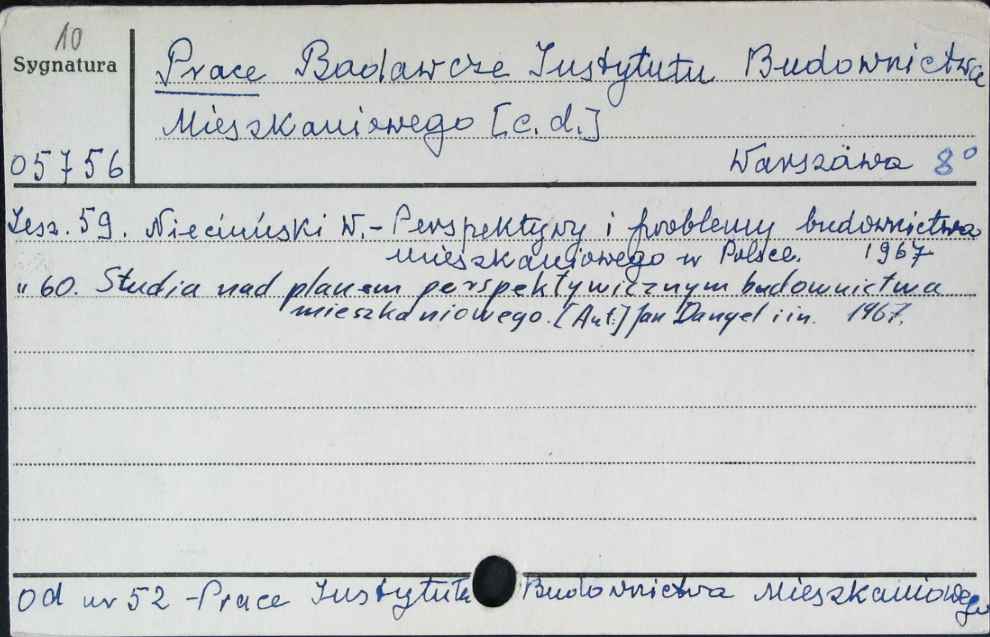 10
Sygnatura
Prace Badawcze Instytutu Budownictwa
Mieszkaniowego [c.d.]
05756
Warszawa 8°
Zesz. 59. Nieciuński W. - Perspektywy i problemy budownictwa
mieszkaniowego w Polsce. 1967
" 60. Studia nad planem perspektywicznym budownictwa
mieszkaniowego. [Aut.] Jan Dangel i in. 1967.
Od nr 52 - Prace Instytutu Budownictwa Mieszkaniowego